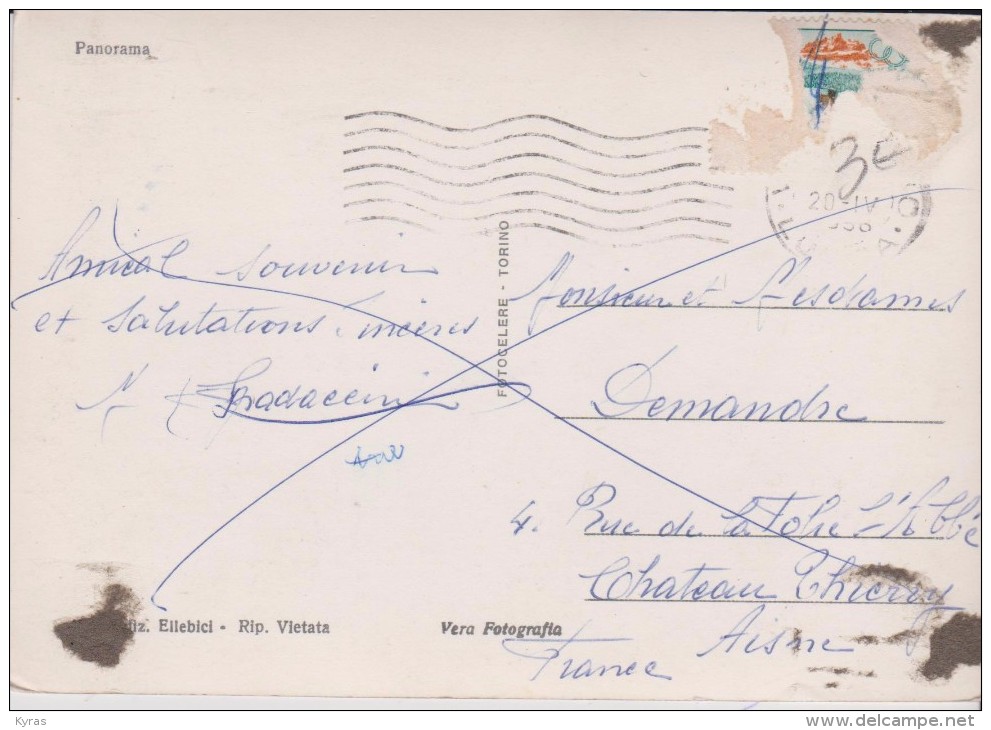 Panorama
3€
20-IV
Amical souvenir
et salutations sincères
Monsieur et Mesdames
Demandre
4. Rue de la Folie l'Abbé
Chateau Thierry
Aisne
France
FOTOCELERE - TORINO
Ediz. Ellebici - Rip. Vietata
Vera Fotografia
Kyras
delcampe.net